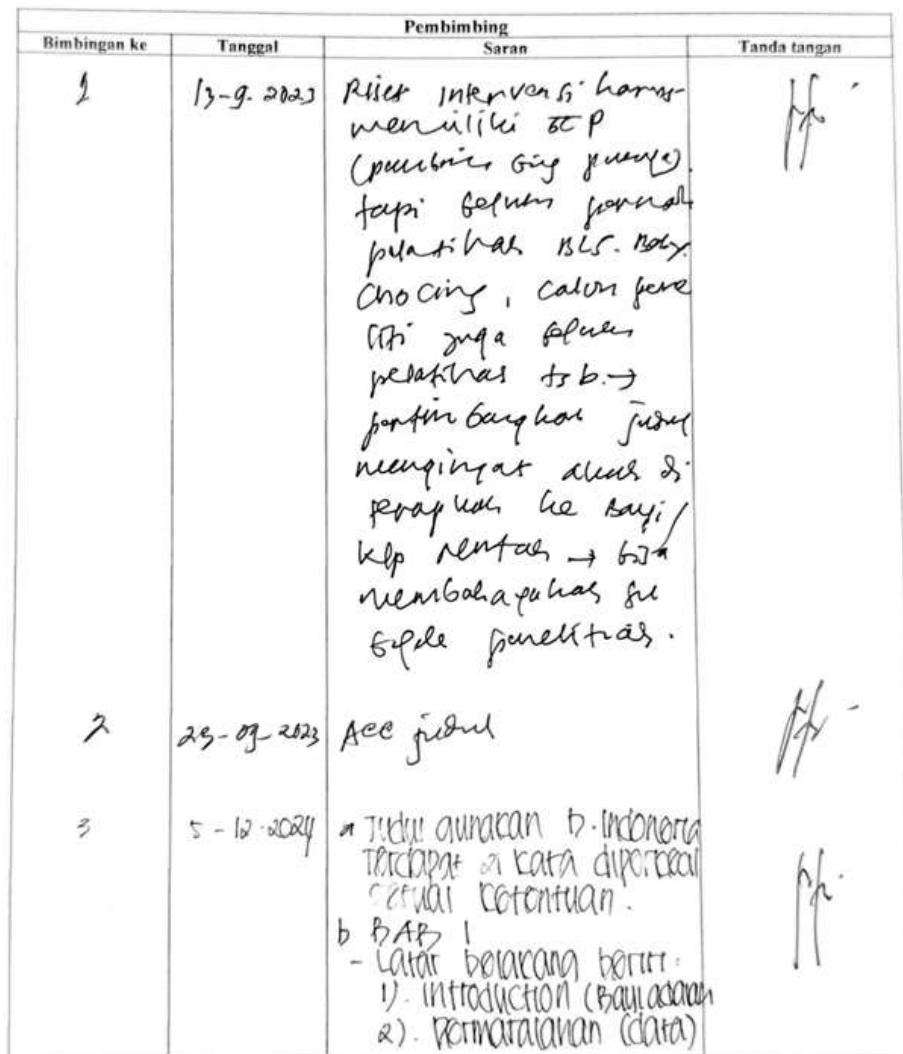 Pembimbing
Bimbingan ke Tanggal Saran Tanda tangan
1 13-9-2023 Riset intervensi harus
memiliki
(pembimbing punya)
tapi belum pernah
pelatihan BLS. Baby
Chocing, calon pene
liti juga belum
pelatihan tsb. →
pertimbangkan judul
mengingat akan di
terapkan ke bayi/
klp rentan → bisa
membahayakan su
byek penelitian.
2 29-09-2023 ACC judul
3 5-12-2024 a Judul gunakan b. Indonesia
Terdapat 21 kata diperkecil
sesuai ketentuan.
b BAB 1
- Latar belakang berisi:
1). Introduction (Bayi adalah
2). Permasalahan (data)